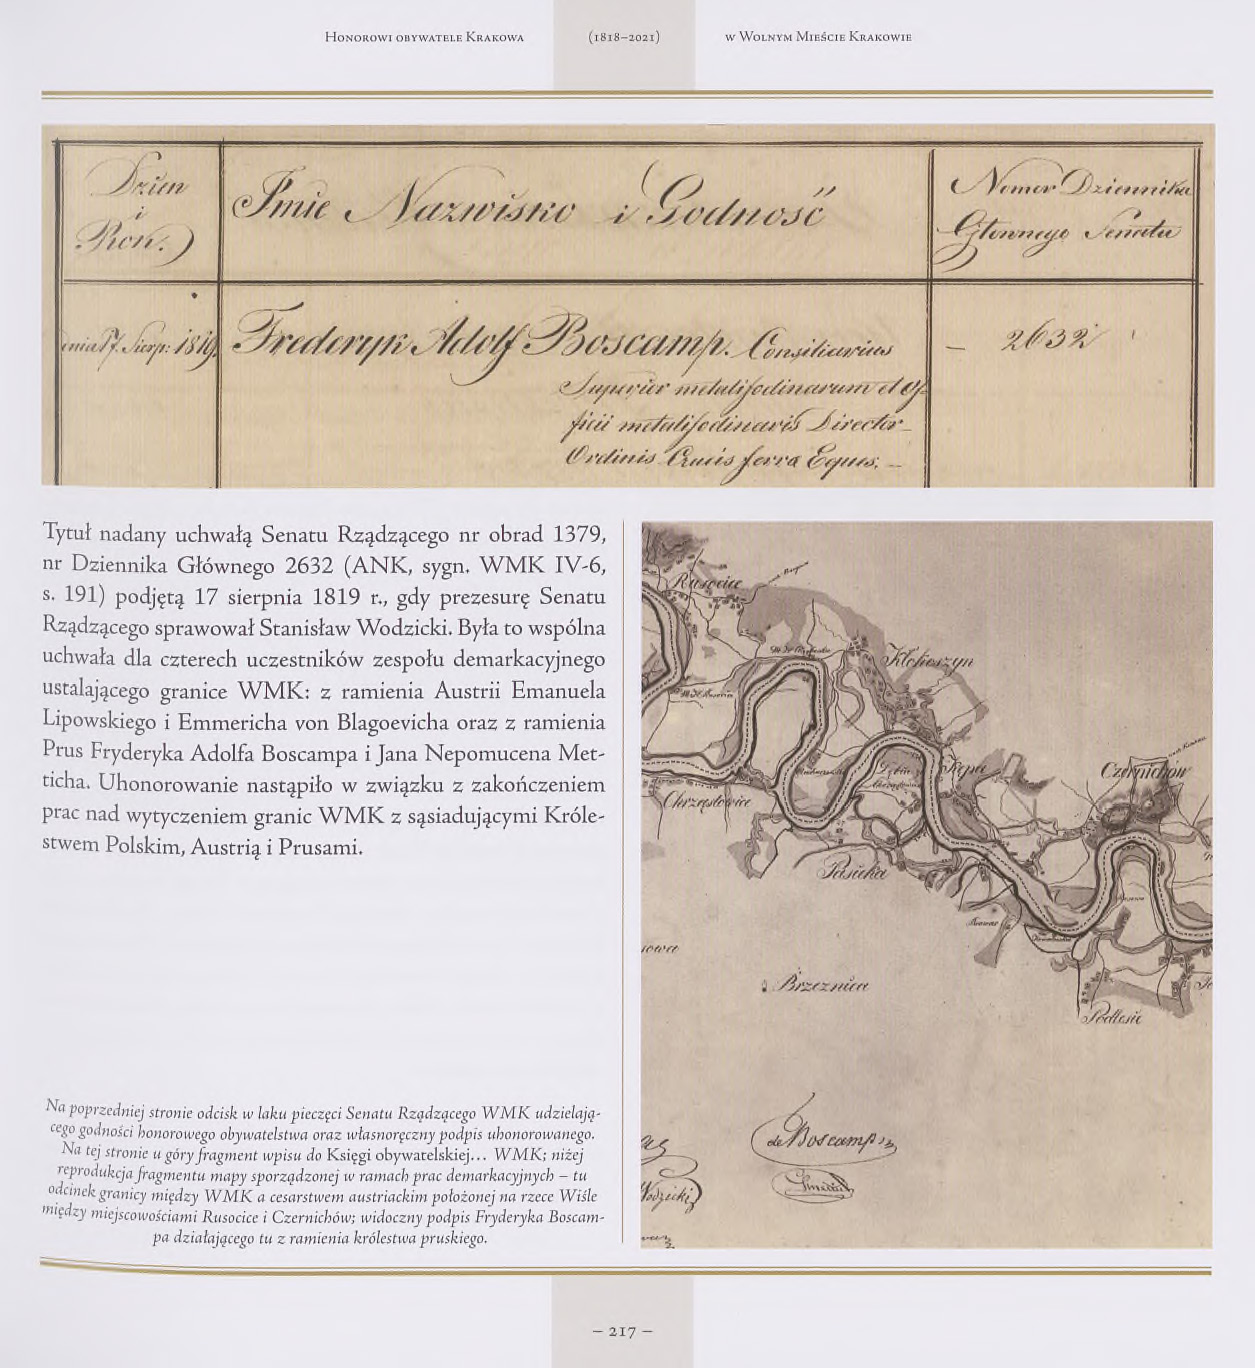 Honorowi obywatele Krakowa (1818–2021) w Wolnym Mieście Krakowie
Dzien
i
Rok.
Imie Nazwisko i Godność
Nomer Dziennika
Głownego Senatu
dnia 17. Sierp: 1819.
Frederyk Adolf Boscamp. Consiliarius
Superior metalifodinarum et of-
ficii metalifodinaris Director
Ordinis Crucis ferra Eques. –
– 2632
Tytuł nadany uchwałą Senatu Rządzącego nr obrad 1379,
nr Dziennika Głównego 2632 (ANK, sygn. WMK IV-6,
s. 191) podjętą 17 sierpnia 1819 r., gdy prezesurę Senatu
Rządzącego sprawował Stanisław Wodzicki. Była to wspólna
uchwała dla czterech uczestników zespołu demarkacyjnego
ustalającego granice WMK: z ramienia Austrii Emanuela
Lipowskiego i Emmericha von Blagoevicha oraz z ramienia
Prus Fryderyka Adolfa Boscampa i Jana Nepomucena Met-
ticha. Uhonorowanie nastąpiło w związku z zakończeniem
prac nad wytyczeniem granic WMK z sąsiadującymi Króle-
stwem Polskim, Austrią i Prusami.
Na poprzedniej stronie odcisk w laku pieczęci Senatu Rządzącego WMK udzielają-
cego godności honorowego obywatelstwa oraz własnoręczny podpis uhonorowanego.
Na tej stronie u góry fragment wpisu do Księgi obywatelskiej... WMK; niżej
reprodukcja fragmentu mapy sporządzonej w ramach prac demarkacyjnych – tu
odcinek granicy między WMK a cesarstwem austriackim położonej na rzece Wiśle
między miejscowościami Rusocice i Czernichów; widoczny podpis Fryderyka Boscam-
pa działającego tu z ramienia królestwa pruskiego.
Rusocice
Kłokoszyn
Kępa
Czernichów
Chrząstowice
Pasieka
Brzeznica
Podlesie
de Boscamp
Wodzicki
– 217 –